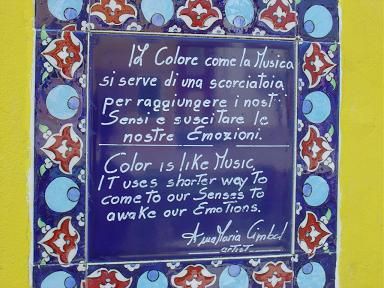 Il Colore come la Musica
si serve di una scorciatoia
per raggiungere i nostri
Sensi e suscitare le
nostre Emozioni.
Color is like Music
IT uses shorter way To
come to our Senses To
awake our EmoTions.
AnnaMaria
artist